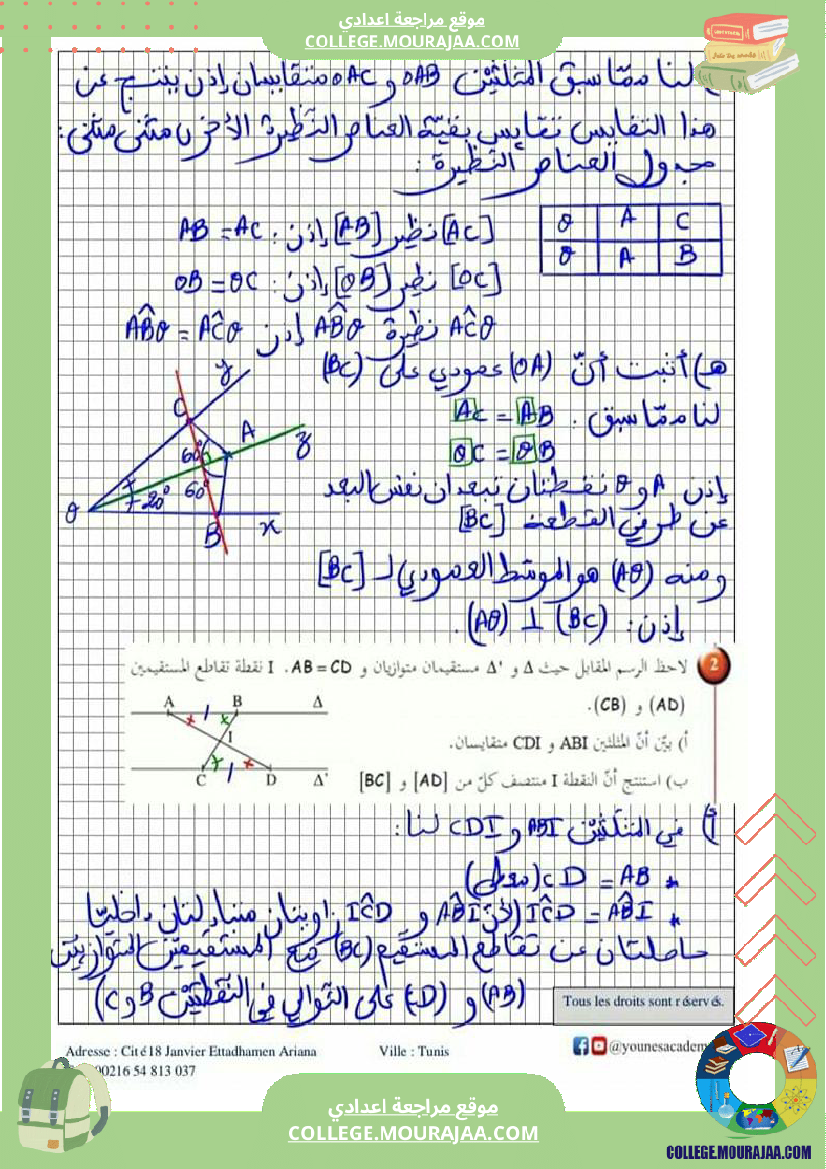 موقع مراجعة اعدادي
COLLEGE.MOURAJAA.COM
لنا ممّا سبق المثلثين OAB و OAC متقايسان إذن ينتج عن
هذا التقايس تقايس بقيّة العناصر النّظيرة الأخرى مثنى مثنى:
جدول العناصر النّظيرة:
O A C
O A B
[AC] نظير [AB] إذن: AB = AC
[OC] نظير [OB] إذن: OB = OC
AĈO نظيرة AB̂O إذن AB̂O = AĈO
هـ) أثبت أنّ (OA) عمودي على (BC)
لنا ممّا سبق: AC = AB
OC = OB
إذن A و O نقطتان تبعدان نفس البعد
عن طرفي القطعة [BC]
ومنه (AO) هو الموسّط العمودي لـ [BC]
إذن: (BC) ⊥ (AO).
y
C
A
z
60°
60°
20°
O
B
x
2
لاحظ الرسم المقابل حيث Δ و Δ' مستقيمان متوازيان و AB = CD. I نقطة تقاطع المستقيمين
(AD) و (CB).
أ) بيّن أنّ المثلثين ABI و CDI متقايسان.
ب) استنتج أنّ النقطة I منتصف كلّ من [AD] و [BC]
A B Δ
I
C D Δ'
أ) في المثلّثين ABI و CDI لنا:
* CD = AB (معطى)
* IĈD = AB̂I (لأنّ AB̂I و IĈD زاويتان متبادلتان داخليّا
حاصلتان عن تقاطع المستقيم (BC) مع المستقيمين المتوازيين
(AB) و (CD) على التوالي في النّقطتين B و C)
Tous les droits sont réservés.
Adresse : Cité18 Janvier Ettadhamen Ariana
Ville : Tunis
@younesacadem
00216 54 813 037
موقع مراجعة اعدادي
COLLEGE.MOURAJAA.COM
COLLEGE.MOURAJAA.COM